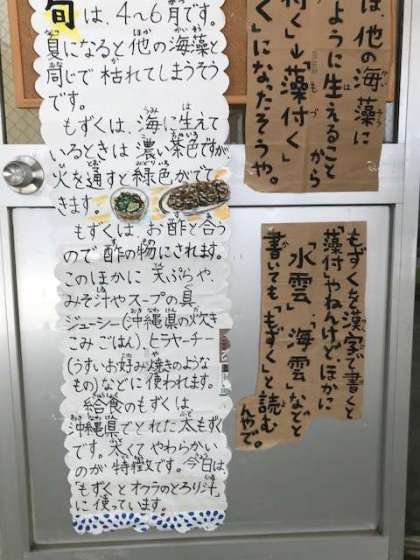 旬は、4〜6月です。
夏になると他の海藻と
同じで枯れてしまうそう
です。
もずくは、海に生えて
いるときは濃い茶色ですが
火を通すと緑色がでて
きます。
もずくは、お酢と合う
ので酢の物にされます。
このほかに天ぷらや、
みそ汁やスープの具、
ジューシー(沖縄県の炊き
こみごはん)、ヒラヤーチー
(うすいお好み焼きのような
もの)などに使われます。
給食のもずくは
沖縄県でとれた太もずく
です。太くてやわらかい
のが特徴です。今日は
「もずくとオクラのとろり汁」
に使っています。
は、他の海藻に
ように生えること
付く」↓「藻付く」から
く」になったそうや。
もずくを漢字で書くと
「藻付」やねんけどほかに
「水雲」「海雲」などと
書いても「もずく」と読む
んやで。